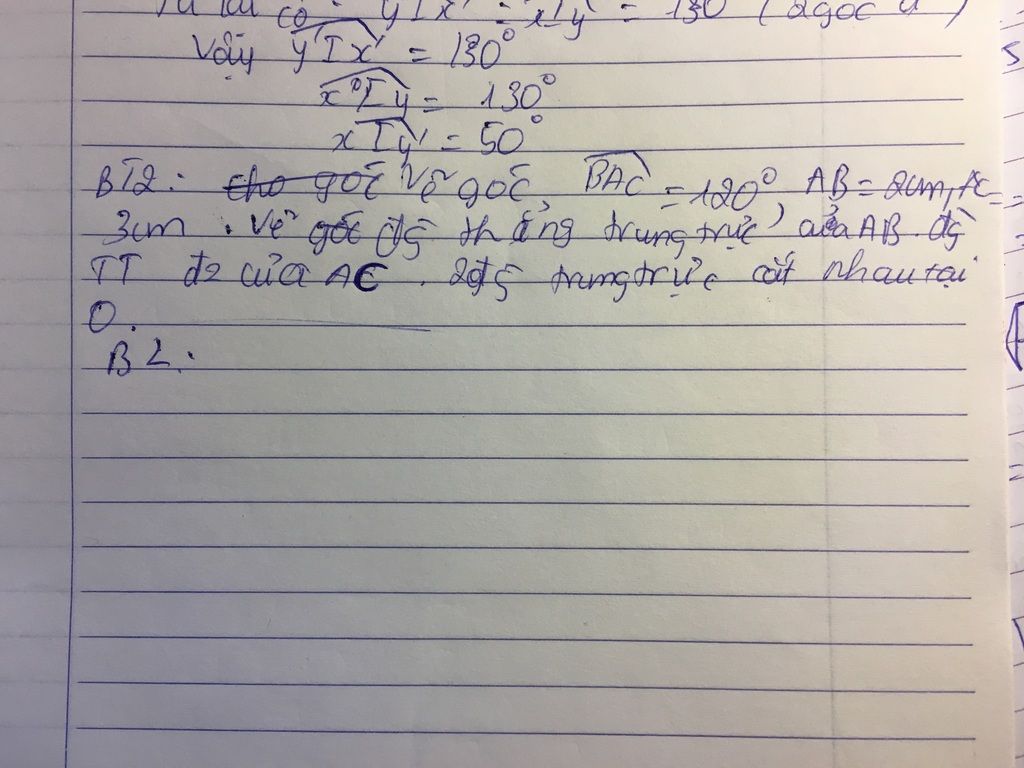 có: y'Ix' = xIy = 130 (2góc
Vậy y'Ix' = 130°
x°Iy = 130°
xIy' = 50°
BT2: cho góc Vẽ góc, BAC = 120°, AB = 2cm, AC =
3cm. Vẽ góc đg thẳng trung trực của AB. đg
TT d2 của AC. 2 đg trung trực cắt nhau tại
O.
BL: